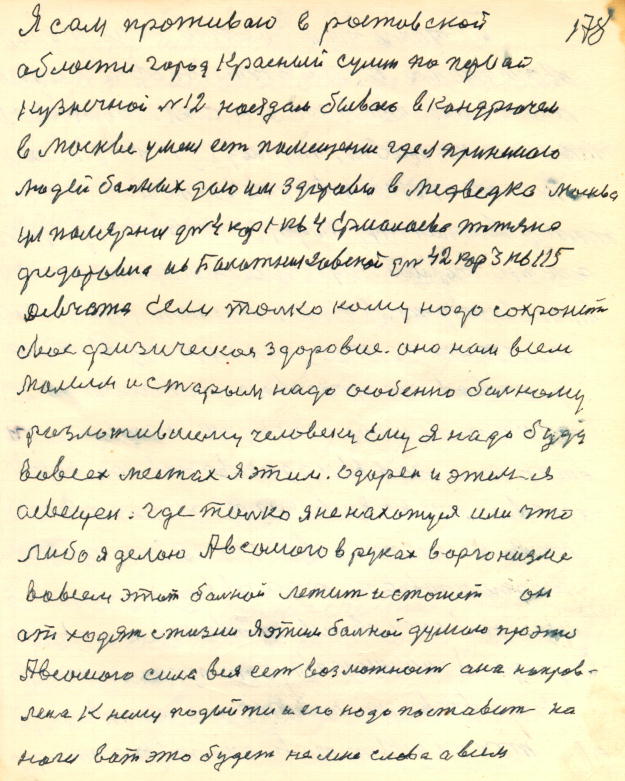 178
Я сам проживаю в ростовской
области город Красний сулин по первай
Кузнечной №12 наездам бываю в Кондрючем
в Москве у меня ест помещение где я принемаю
людей балных даю им здоровие в медведка москва
ул палярная дм 4 кор 1 кв 4 Ермалаева
федаровна ив Балотниковской дм 42 кор 3 кв 115
девчата Если толко кому надо сохронет
свае физическоя здоровие. оно нам всем
малим и старым надо особенно балному
человеку Ему я надо буду
вовсех местах я этим. одарен и этем я
асвещен. где толко я не нахожуся или что
либо я делаю А в самого в руках в аргонизме
вовсем этот балной лежит и стонет он
от ходят с жизни я этим балной думаю про это
А в самого сила вся ест возможност ана напров-
лена К нему подойти и его надо поставит на
ноги вот это будет на мне слова а всем